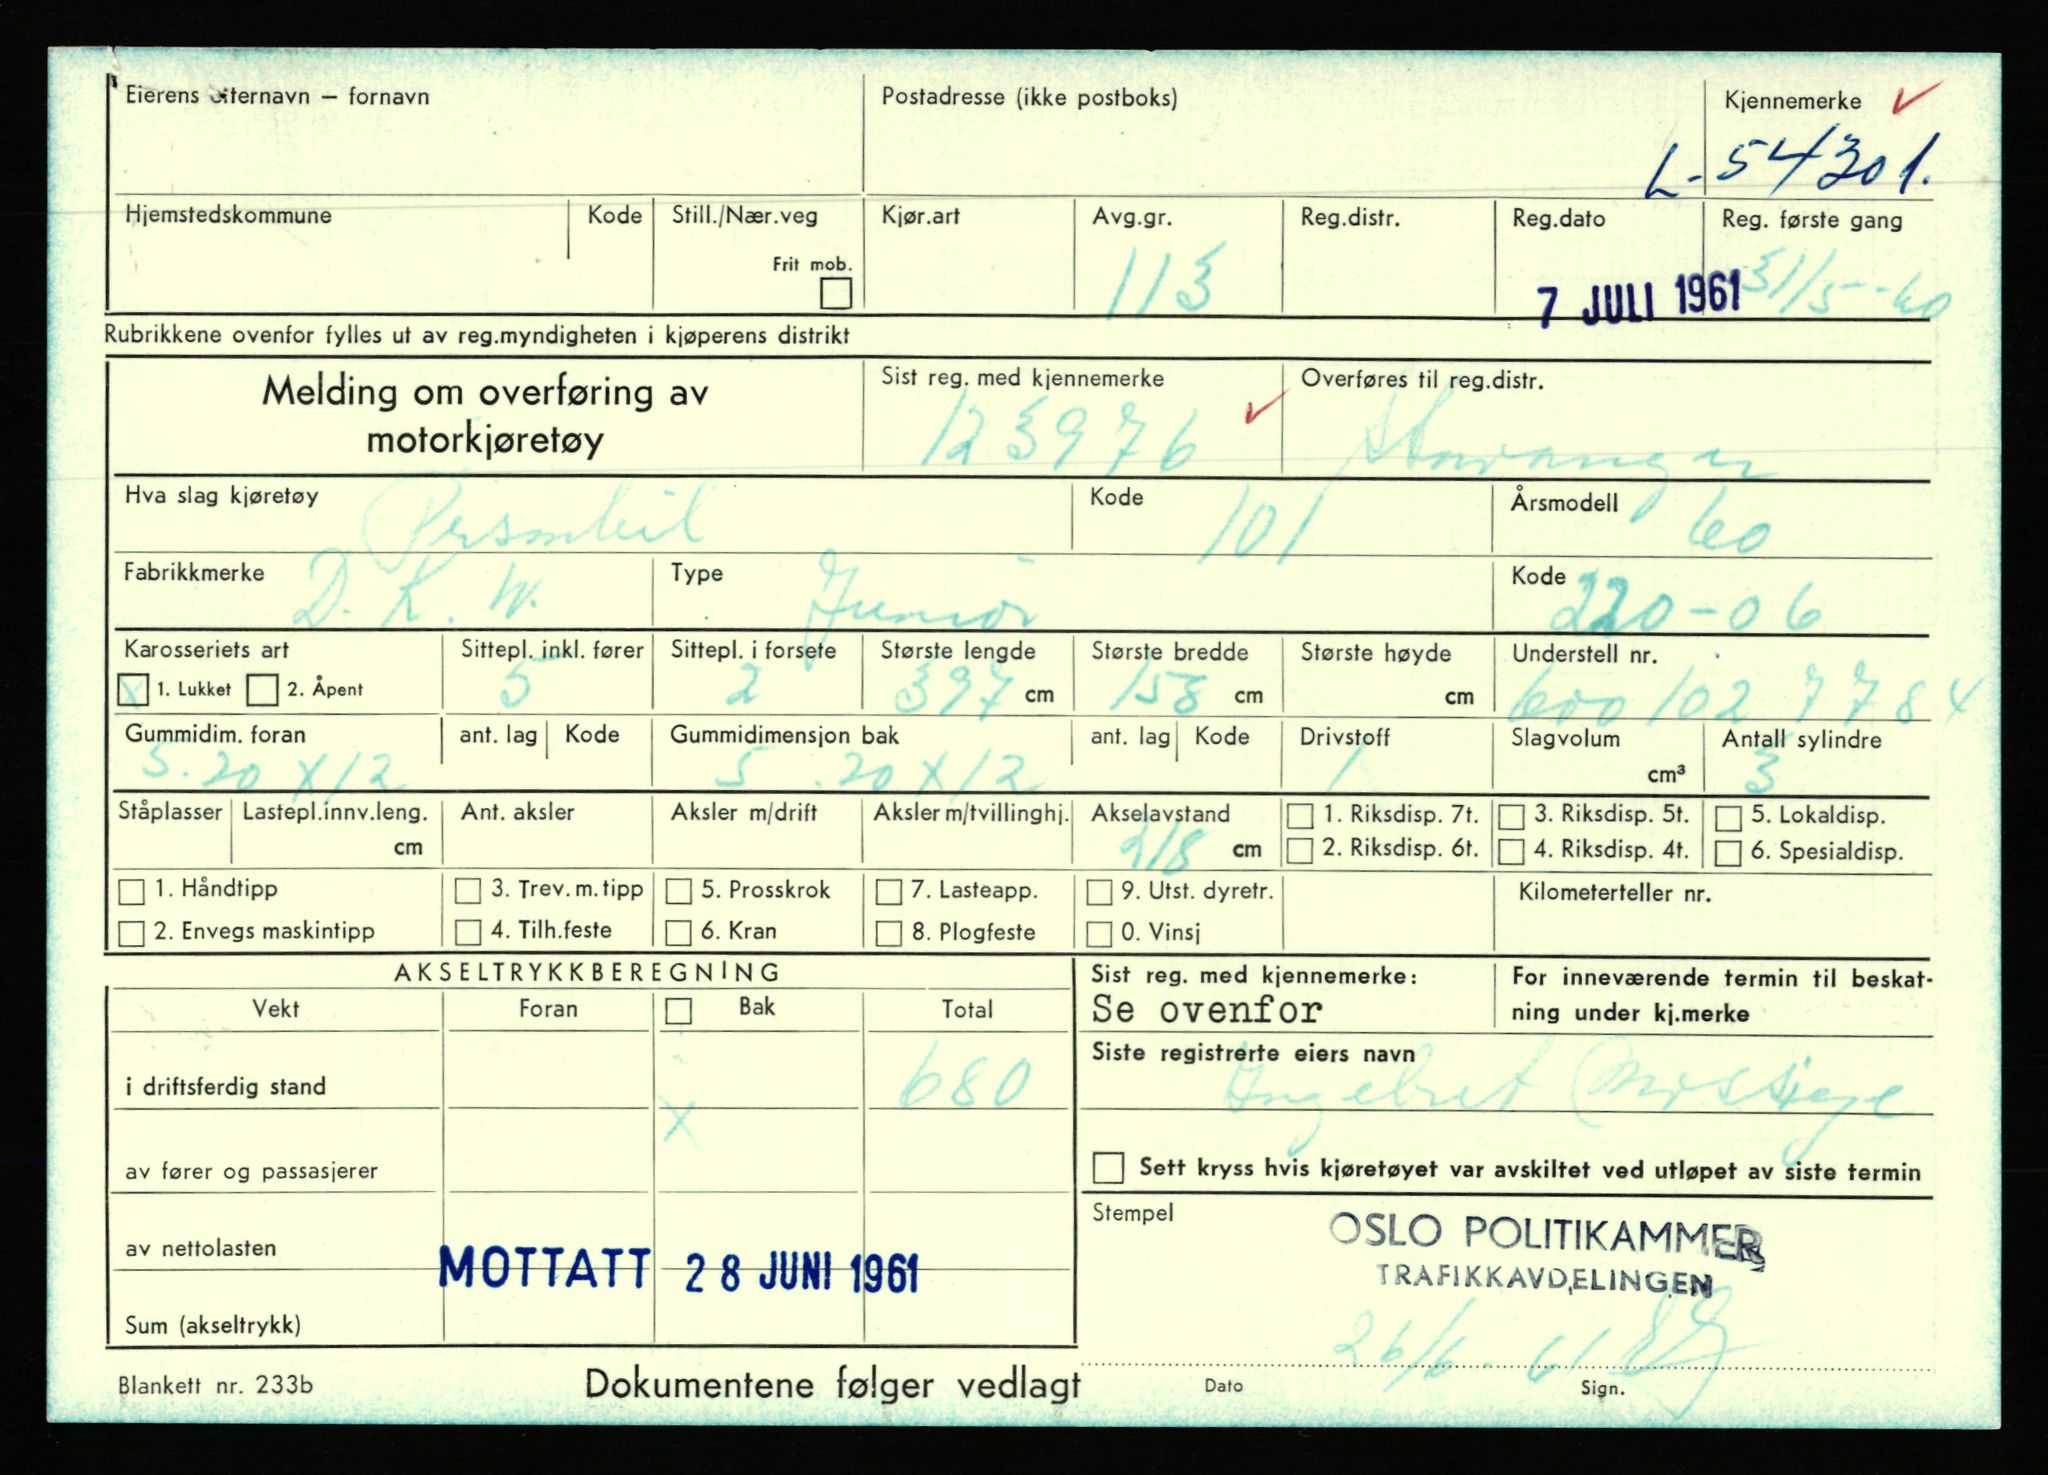 Eierens etternavn – fornavn
Postadresse (ikke postboks)
Kjennemerke
L-54301.
Hjemstedskommune
Kode
Still./Nær.veg
Frit mob.
Kjør.art
Avg.gr.
113
Reg.distr.
Reg.dato
7 JULI 1961
Reg. første gang
31/5-60
Rubrikkene ovenfor fylles ut av reg.myndigheten i kjøperens distrikt
Melding om overføring av
motorkjøretøy
Sist reg. med kjennemerke
123976
Overføres til reg.distr.
Stavanger
Hva slag kjøretøy
Personbil
Kode
101
Årsmodell
60
Fabrikkmerke
D. K. W.
Type
Junior
Kode
220-06
Karosseriets art
X 1. Lukket
2. Åpent
Sittepl. inkl. fører
5
Sittepl. i forsete
2
Største lengde
397 cm
Største bredde
158 cm
Største høyde
cm
Understell nr.
6001027784
Gummidim. foran
5.20 X 12
ant. lag
Kode
Gummidimensjon bak
5.20 X 12
ant. lag
Kode
Drivstoff
1
Slagvolum
cm³
Antall sylindre
3
Ståplasser
Lastepl.innv.leng.
cm
Ant. aksler
Aksler m/drift
Aksler m/tvillinghj.
Akselavstand
218 cm
1. Riksdisp. 7t.
2. Riksdisp. 6t.
3. Riksdisp. 5t.
4. Riksdisp. 4t.
5. Lokaldisp.
6. Spesialdisp.
1. Håndtipp
2. Envegs maskintipp
3. Trev. m. tipp
4. Tilh.feste
5. Prosskrok
6. Kran
7. Lasteapp.
8. Plogfeste
9. Utst. dyretr.
0. Vinsj
Kilometerteller nr.
AKSELTRYKKBEREGNING
Vekt
Foran
Bak
Total
i driftsferdig stand
680
X
av fører og passasjerer
av nettolasten
Sum (akseltrykk)
MOTTATT 28 JUNI 1961
Sist reg. med kjennemerke:
Se ovenfor
For inneværende termin til beskat-
ning under kj.merke
Siste registrerte eiers navn
Ingebret
Sett kryss hvis kjøretøyet var avskiltet ved utløpet av siste termin
Stempel
OSLO POLITIKAMMER
TRAFIKKAVDELINGEN
26/6-61
Dato
Sign.
Blankett nr. 233b
Dokumentene følger vedlagt